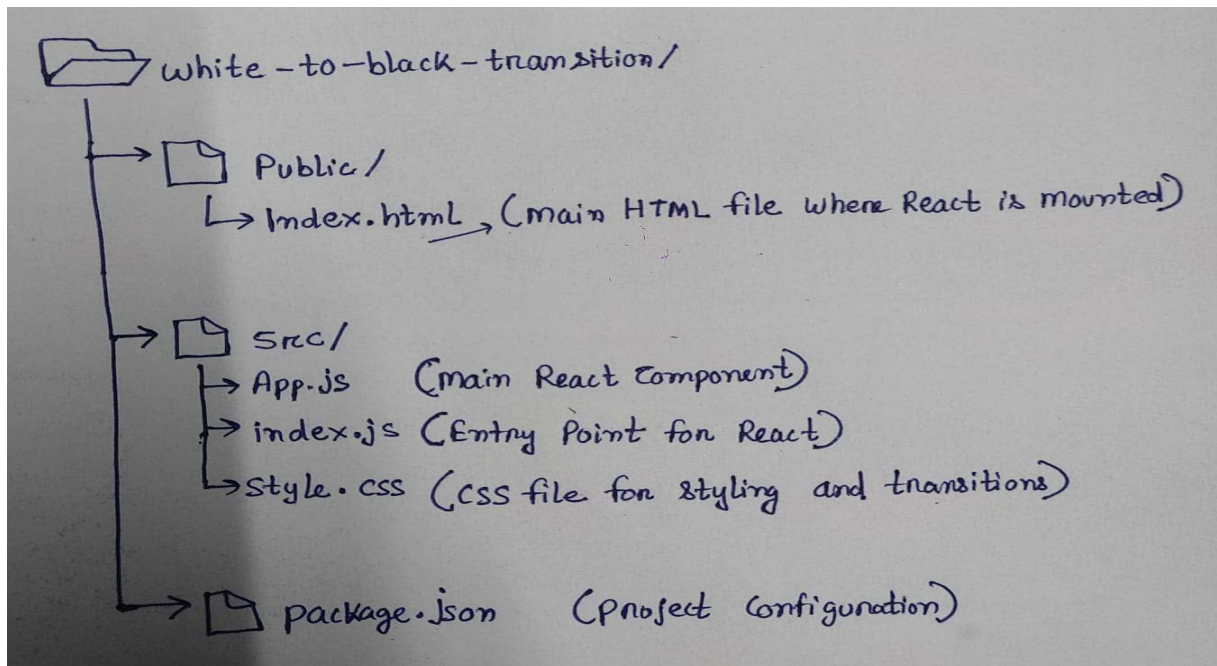 white-to-black-transition/
Public/
Index.html (main HTML file where React is mounted)
src/
App.js (main React Component)
index.js (Entry Point for React)
style.css (CSS file for styling and transitions)
package.json (Project Configuration)